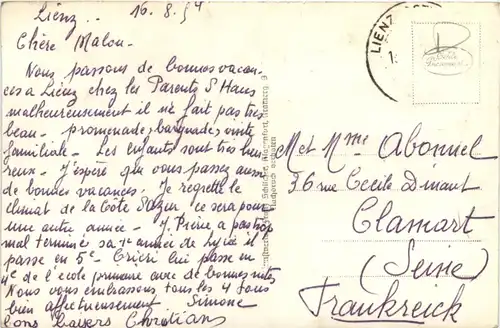 Lienz.. 16.8.54
Chère Malou-
Nous passons de bonnes vacan-
ces a Lienz chez les Parents d'Hans
malheureusement il ne fait pas très
beau - promenades, baignades, visite
familiale - Les enfants sont très heu
reux - J'espère que vous passez aussi
de bonnes vacances. Je regrette le
climat de la Côte d'Azur ce sera pour
une autre année - J. Pierre a pas trop
mal terminé sa année de lycée il
passe en 5e - lui passe en
4e de l'école primaire avec de bonnes notes
Nous vous embrassons tous les 4 tous
bien affectueusement Simone
Christian
LIENZ
Met Mme Abonnel
36 rue Cecile Dinant
Clamart
(Seine)
Frankreich